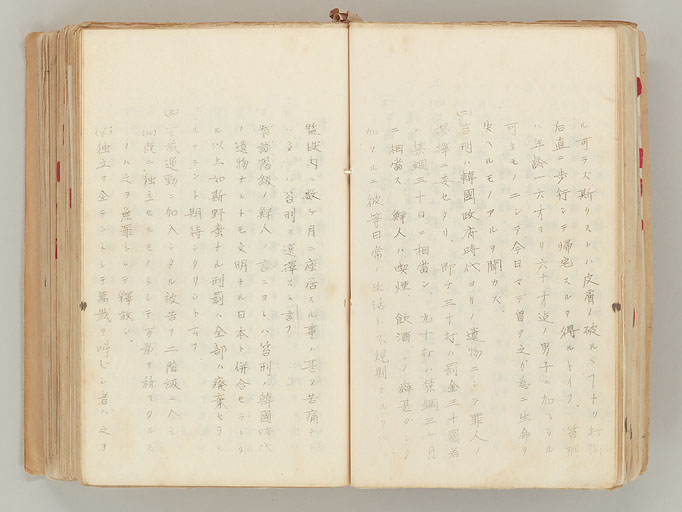 ル可ラズ斯クスレハ皮膚ノ破ルヽコトナク打
后直ニ歩行シテ帰宅スルヲ得ルトイフ、笞刑
ハ年齢一六才ヨリ六十才迄ノ男子ニ加ヘラル
可キモノニシテ今日マデ曽テ之ガ為ニ生命ヲ
失ヘルモノアルヲ聞カズ、
(二)笞刑ハ韓國政府時代ヨリノ遺物ニシテ罪人ノ
選擇ニ委セタリ、即チ三十打ハ罰金三十圓若
ハ禁錮三十日ニ相當シ、九十打ハ禁錮三ケ月
ニ相當ス 鮮人ハ喫煙 飲酒ノ癖甚シク
加フルニ彼等日常ノ生活ハ不規則ナルヲ以
監獄内ニ数ケ月ニ座居スル事ハ甚ダ苦痛ナレ
ハ笞刑ヲ選擇スト言フ
階級ノ鮮人ノ言ニヨレハ笞刑ハ韓國時代
ノ遺物ナレトモ文明ナル日本ト併合セラレタ
ル以上如斯野蛮ナル刑罰ハ全部ハ廃棄セラレ
ント期待シタリシト言フ
(三)万歳運動ニ加入シタル被告ヲ二階級ニ分ツ
(い)既ニ独立セルモノトシテ万歳ヲ称ヘタルモ
ノハ之ヲ無罪トシテ釋放シ
(ろ)独立ヲ企テントシテ萬歳ヲ叫ビシ者ハ之ヲ